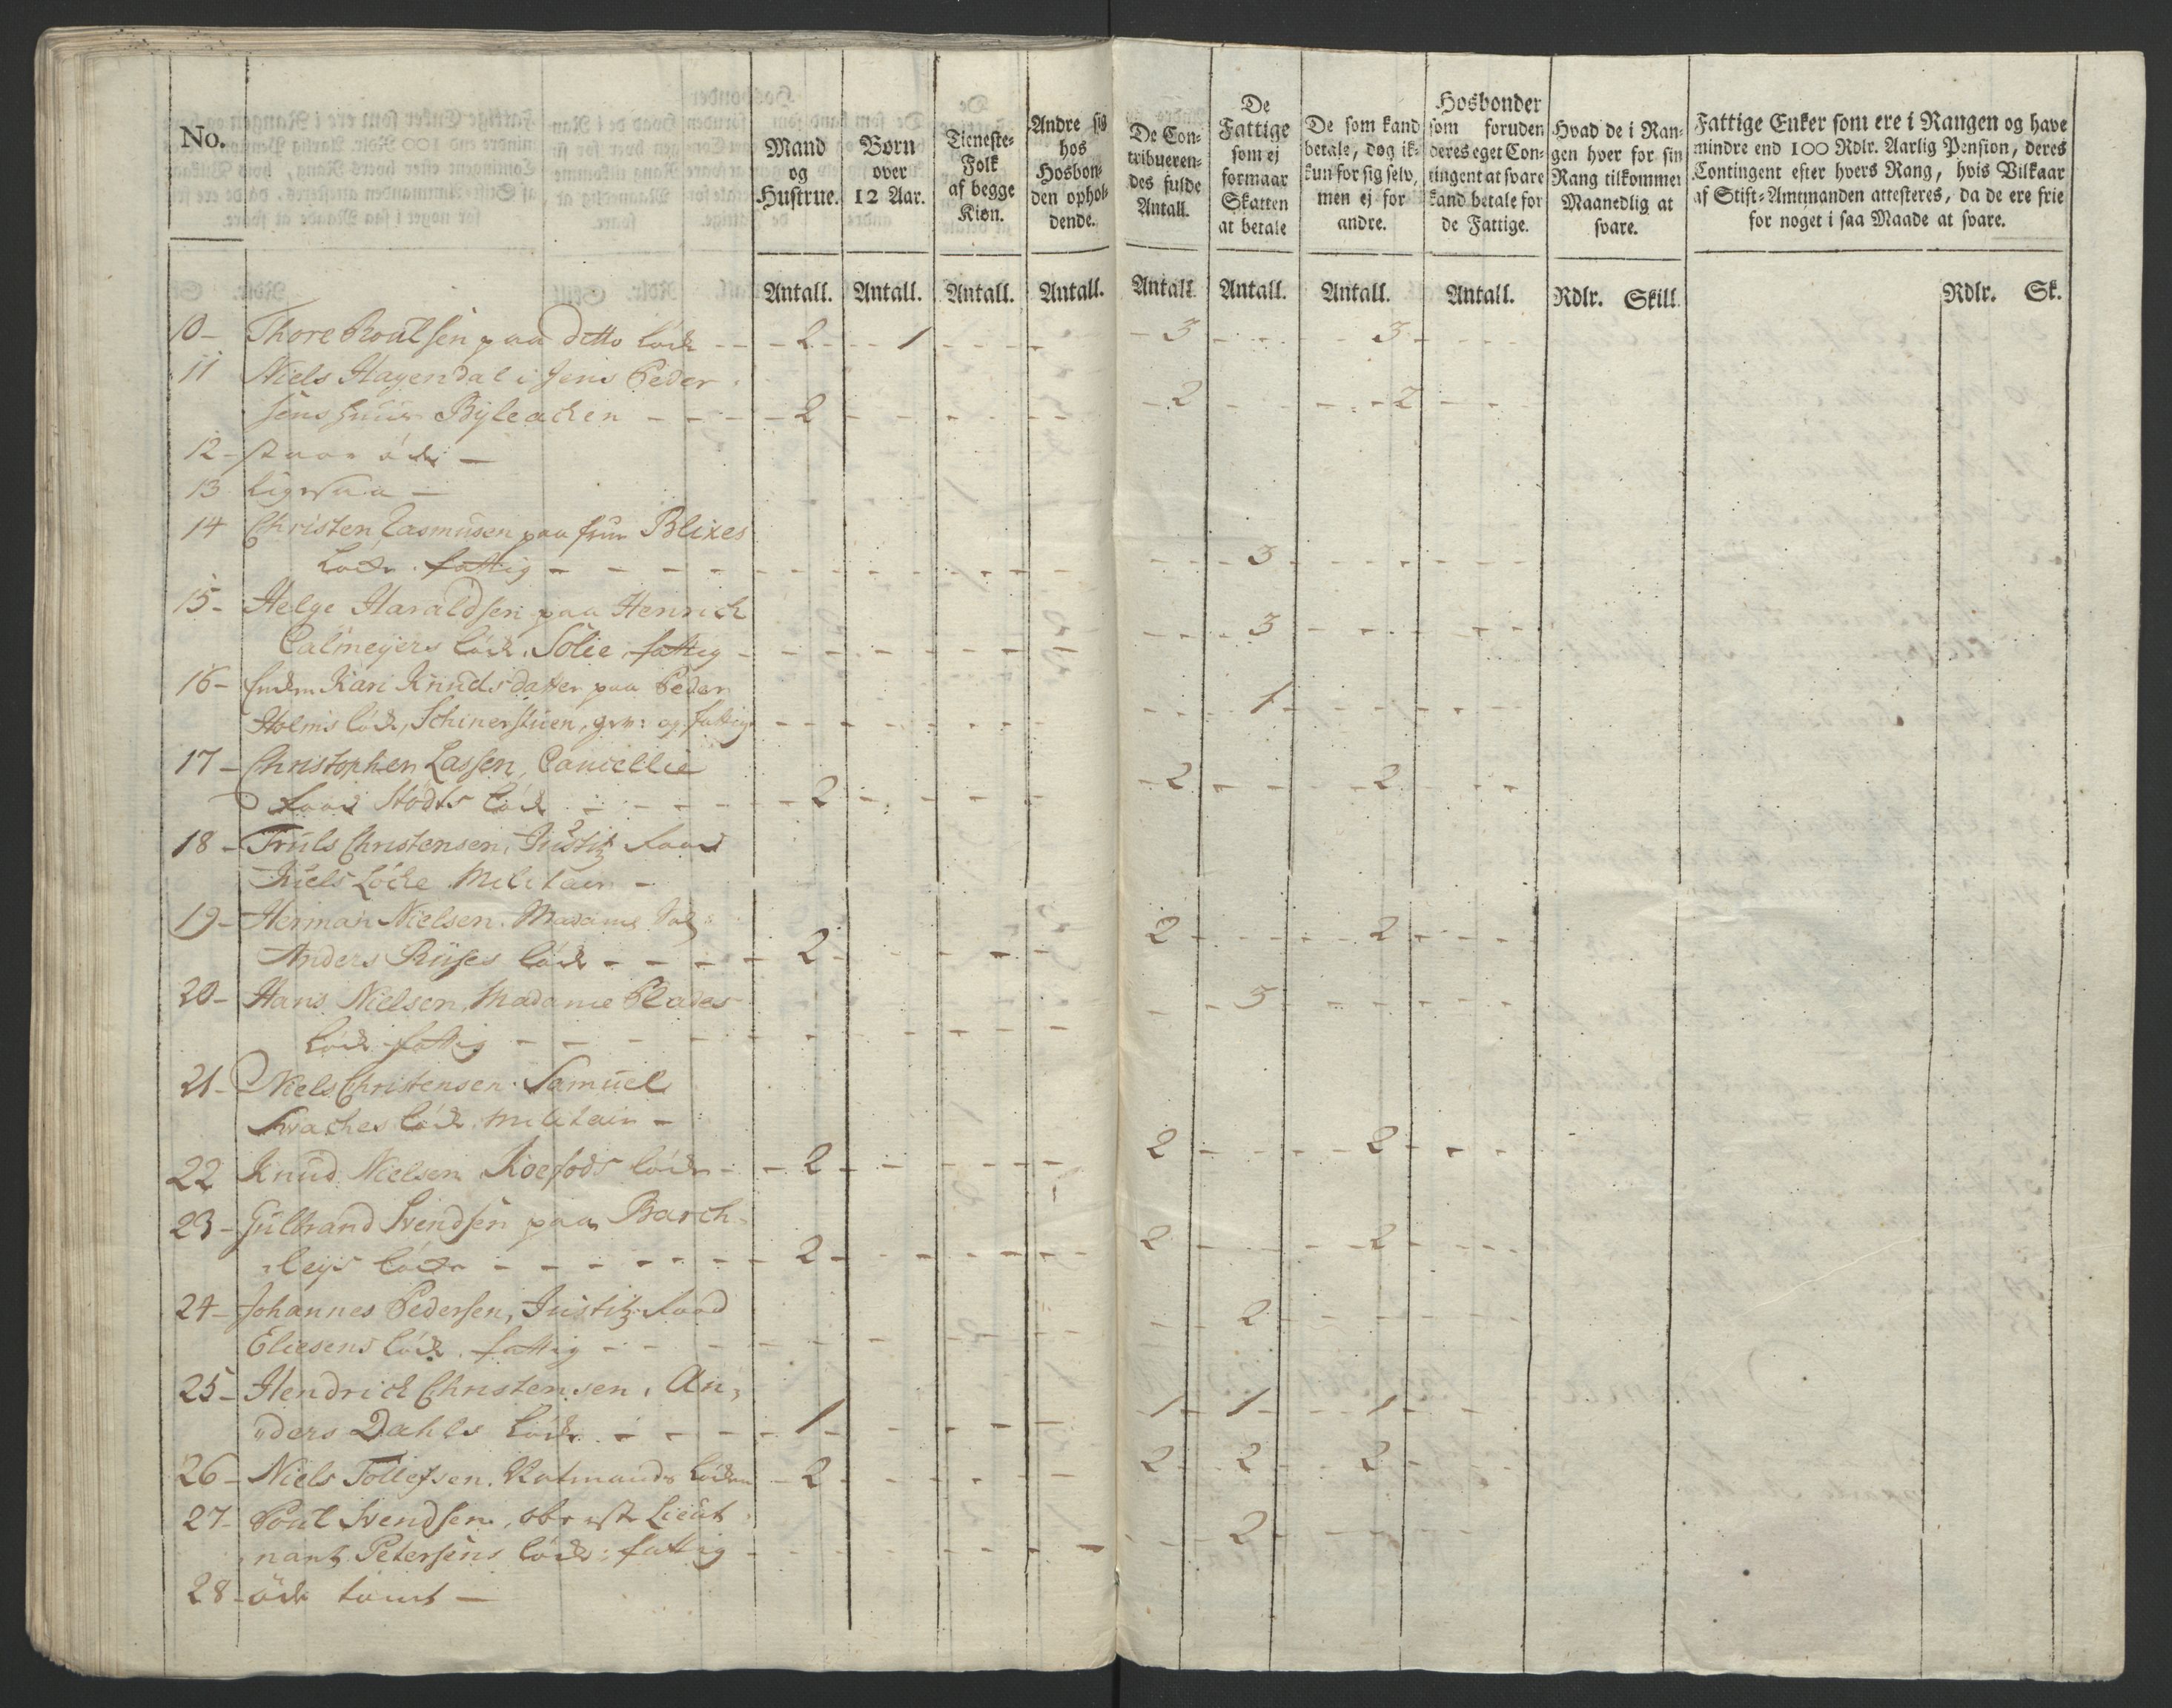 No.
Mand og Hustrue.
Børn over 12 Aar.
Tieneste-Folk af begge Kiøn.
Andre sig hos Hosbon-den ophol-dende.
De Con-tribueren-des fulde Antall.
De Fattige som ej formaar Skatten at betale
De som kand betale, dog ik-kun for sig selv, men ej for andre.
Hosbonder som foruden deres eget Con-tingent at svare kand betale for de Fattige.
Hvad de i Ran-gen hver for sin Rang tilkommer Maanedlig at svare.
Fattige Enker som ere i Rangen og have mindre end 100 Rdlr. Aarlig Pension, deres Contingent efter hvers Rang, hvis Vilkaar af Stift-Amtmanden attesteres, da de ere frie for noget i saa Maade at svare.
Antall. Antall. Antall. Antall. Antall Antall. Antall. Antall. Rdlr. Skill. Rdlr. Sk.
10- Thore Poulsen paa ditto Löcke - - 2 - - 1 - - - - 3 - - - 3 - - -
11 Niels Hagendal i Jens Peder
sens Huus Byleacken - - - 2 - - - - 2 - - - 2 - -
12- staar öde -
13 Ligesaa -
14 Christen Rasmusen paa Blixes
Löcke. fattig - - - - - 3 - - -
15- Helge Haraldsen paa Henrich
Calmeyers Löcke. Solie, fattig - - - - 3 - - -
16- Kari Knudsdatter paa Peder
Holms Löcke, og fattig - - - - 1 - - -
17- Christopher Lassen, Cancellie
Raad Stodts Löcke - - - 2 - - - - 2 - - 2 - -
18- Truls Christensen, Justitz Raad
Juels Löcke Militair -
19- Herman Nielsen. Madame Sal.
Anders Ruses Löcke - - - 2 - - - - 2 - - 2 - -
20- Hans Nielsen, Madame Plades
Löcke fattig - - - - - 3 - - -
21- Niels Christensen. Samuel
Löcke. Militair -
22 Knud Nielsen Koefods Löcke - - 2 - - - - 2 - - 2 - -
23- Gulbrand Svendsen paa Barch
leys Löcke - - - - 2 - - - - 2 - - 2 - -
24- Johannes Pedersen, Justitz Raad
Eliesens Löcke. fattig - - - - 2 - - -
25- Hendrick Christensen, An,
ders Dahls Löcke. - - - 1 - - - - 1 - 1 - 1 - -
26- Niels Tollefsen. Löcke - 2 - - - - 2 - 2 - 2 - -
27- Poul Svendsen, oberst Lieut
nant Petersens Löcke: fattig - - - - 2 - - -
28- öde tomt -